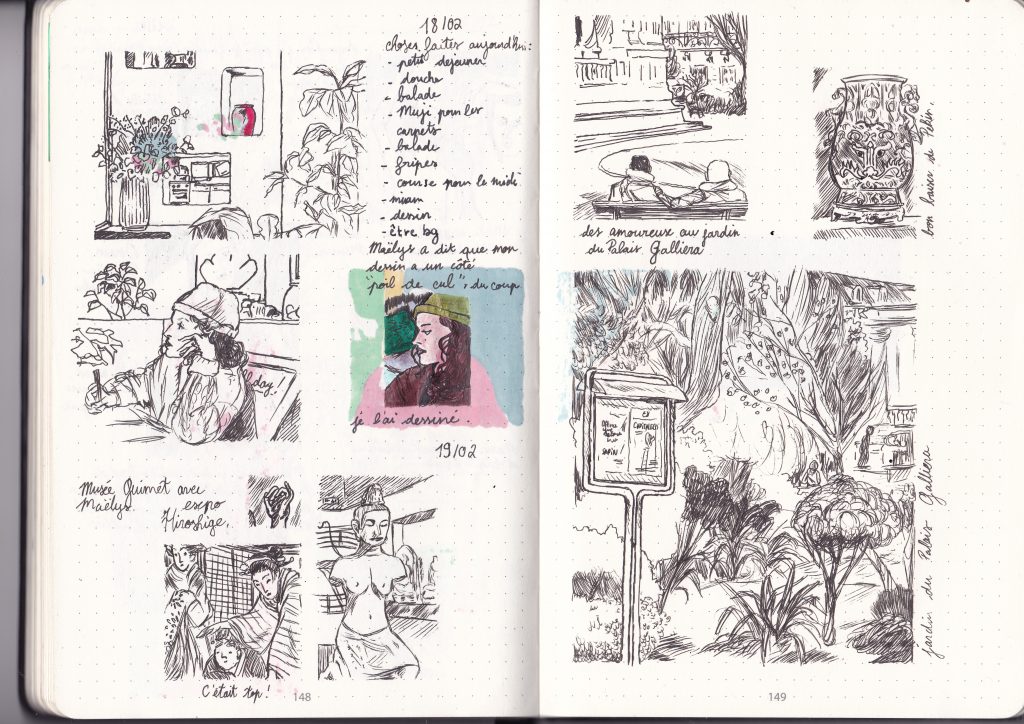 18/02
choses faites aujourd'hui :
- petit déjeuner
- douche
- balade
- Muji pour les
carpets
- balade
- fripes
- course pour le midi
- miam
- dessin
- être bg
Maëlys a dit que mon
dessin a un côté
"poil de cul", du coup
je l'ai dessiné.
day!
19/02
Musée Guimet avec
Maëlys. expo
Hiroshige.
C'était top !
148
des amoureux au jardin
du Palais Galliera
bon baiser de Pékin.
jardin du Palais Galliera
149